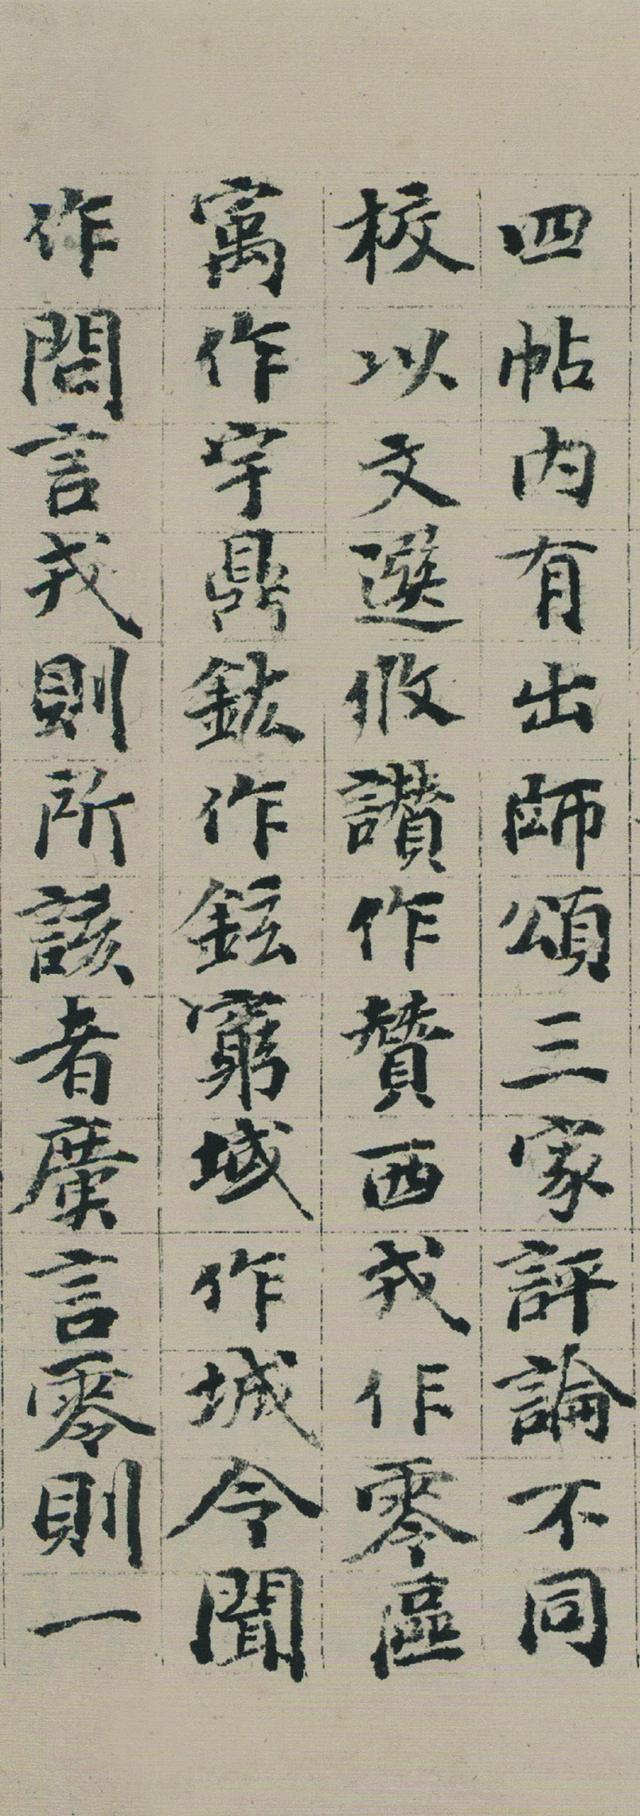 四帖內有出師頌三家評論不同
校以文選攸讚作贊西戎作零區
寓作宇鼎鈜作鉉窮域作城令聞
作問言戎則所該者廣言零則一